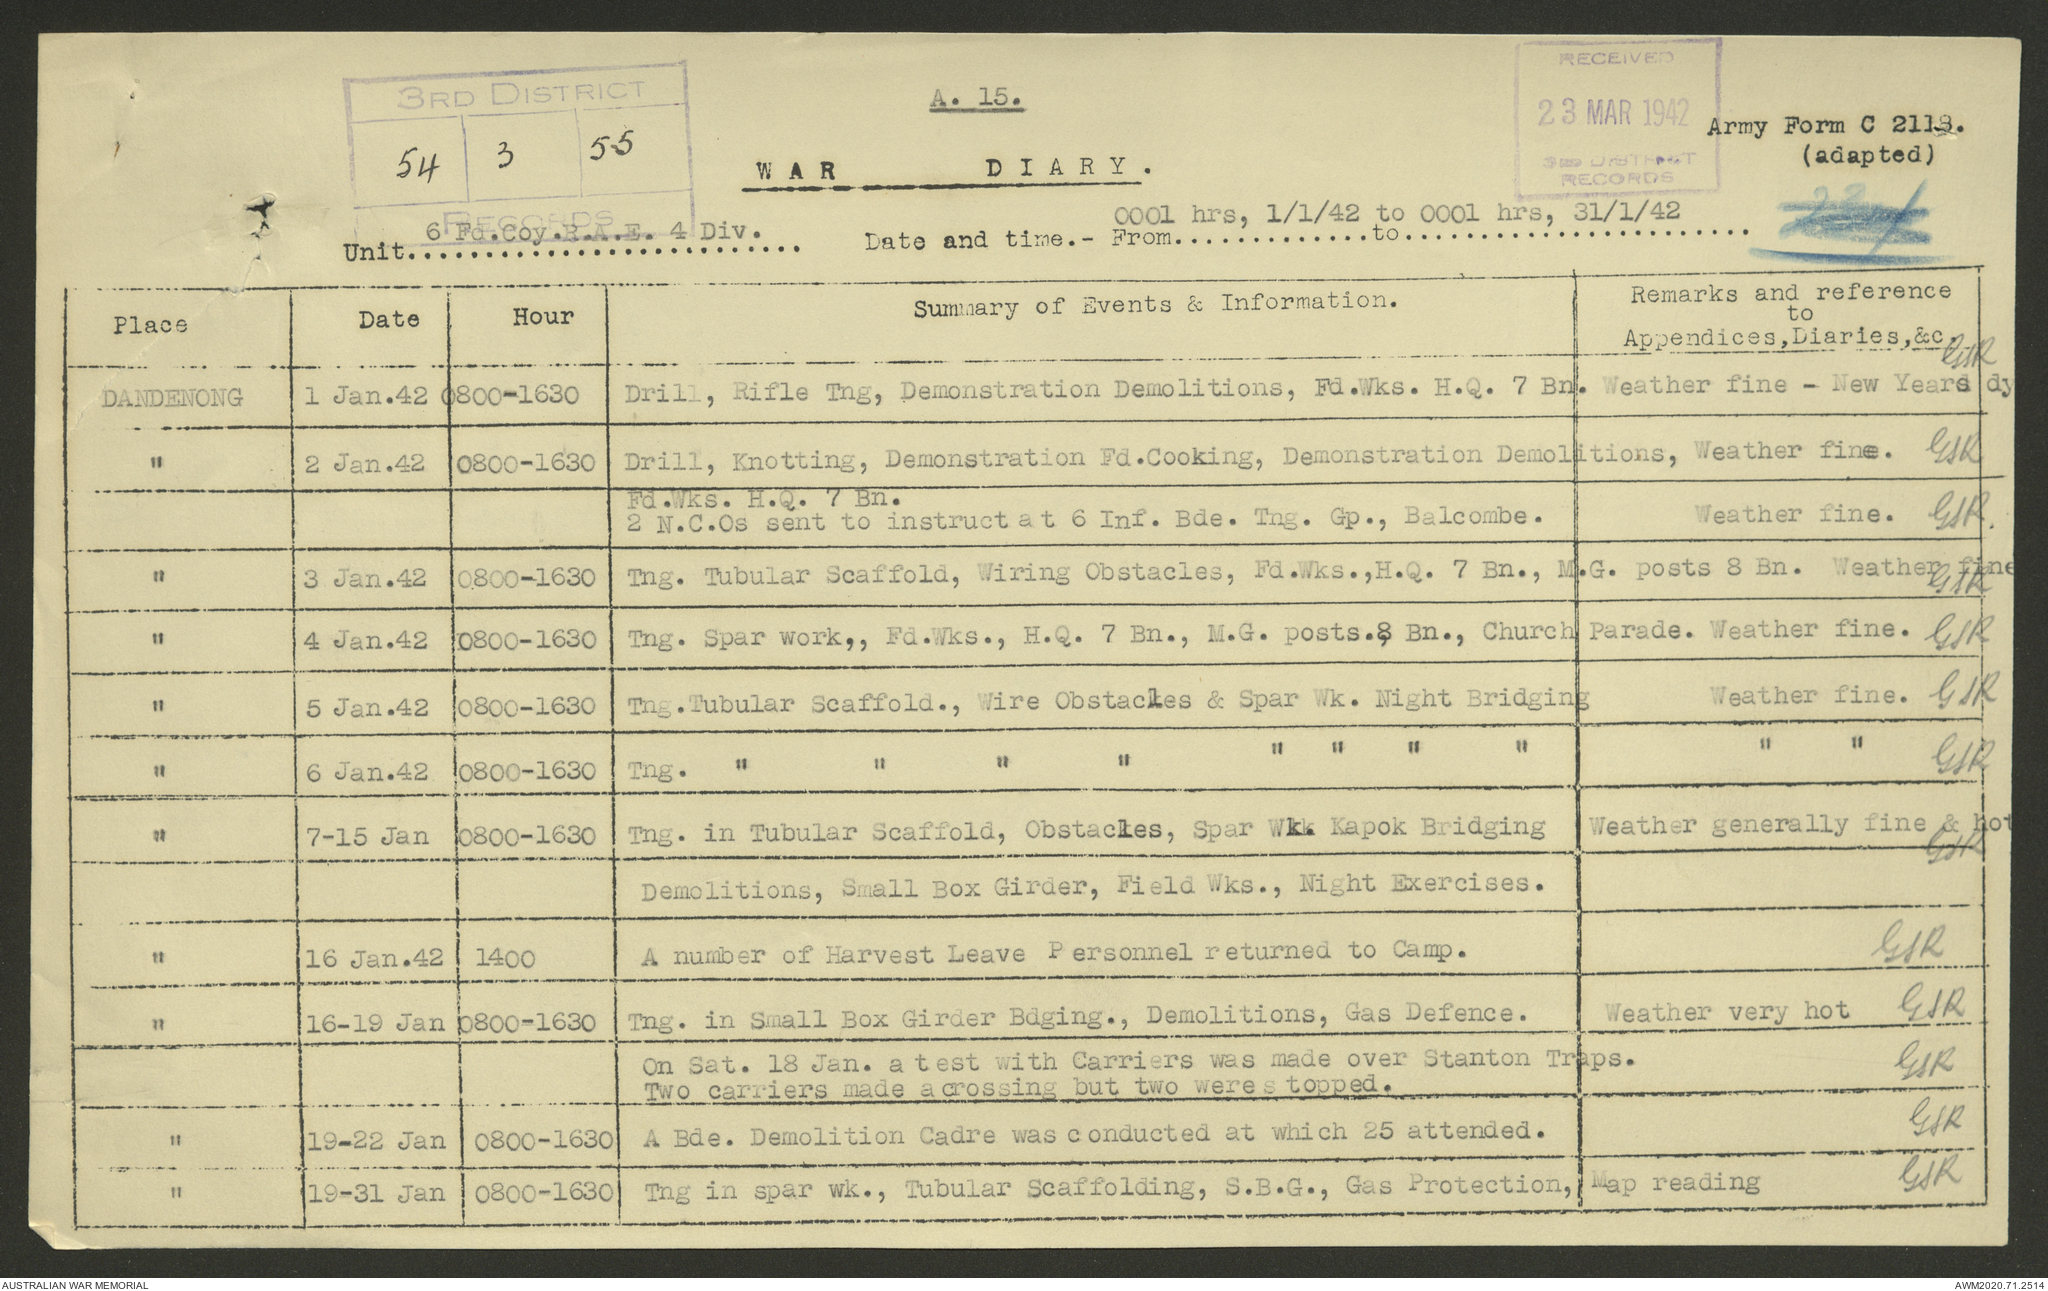 3RD DISTRICT
54 3 55
RECORDS
A. 15.
RECEIVED
23 MAR 1942
3RD DISTRICT
RECORDS
Army Form C 2118.
(adapted)
WAR DIARY.
Unit 6 Fd.Coy.R.A.E. 4 Div.
Date and time.- From 0001 hrs, 1/1/42 to 0001 hrs, 31/1/42
Place Date Hour Summary of Events & Information. Remarks and reference
to
Appendices,Diaries,&c
GSR
DANDENONG 1 Jan.42 0800-1630 Drill, Rifle Tng, Demonstration Demolitions, Fd.Wks. H.Q. 7 Bn. Weather fine - New Years dy
" 2 Jan.42 0800-1630 Drill, Knotting, Demonstration Fd.Cooking, Demonstration Demolitions, Weather fine. GSR
Fd.Wks. H.Q. 7 Bn.
2 N.C.Os sent to instruct at 6 Inf. Bde. Tng. Gp., Balcombe. Weather fine. GSR.
" 3 Jan.42 0800-1630 Tng. Tubular Scaffold, Wiring Obstacles, Fd.Wks.,H.Q. 7 Bn., M.G. posts 8 Bn. Weather fine
GSR
" 4 Jan.42 0800-1630 Tng. Spar work,, Fd.Wks., H.Q. 7 Bn., M.G. posts.8 Bn., Church Parade. Weather fine. GSR
" 5 Jan.42 0800-1630 Tng.Tubular Scaffold., Wire Obstacles & Spar Wk. Night Bridging Weather fine. GSR
" 6 Jan.42 0800-1630 Tng. " " " " " " " " " " GSR
" 7-15 Jan 0800-1630 Tng. in Tubular Scaffold, Obstacles, Spar Wk. Kapok Bridging Weather generally fine & hot
GSR
Demolitions, Small Box Girder, Field Wks., Night Exercises.
" 16 Jan.42 1400 A number of Harvest Leave Personnel returned to Camp. GSR
" 16-19 Jan 0800-1630 Tng. in Small Box Girder Bdging., Demolitions, Gas Defence. Weather very hot GSR
On Sat. 18 Jan. a test with Carriers was made over Stanton Traps. GSR
Two carriers made a crossing but two were stopped.
" 19-22 Jan 0800-1630 A Bde. Demolition Cadre was conducted at which 25 attended. GSR
" 19-31 Jan 0800-1630 Tng in spar wk., Tubular Scaffolding, S.B.G., Gas Protection, Map reading GSR
AUSTRALIAN WAR MEMORIAL
AWM2020.71.2514